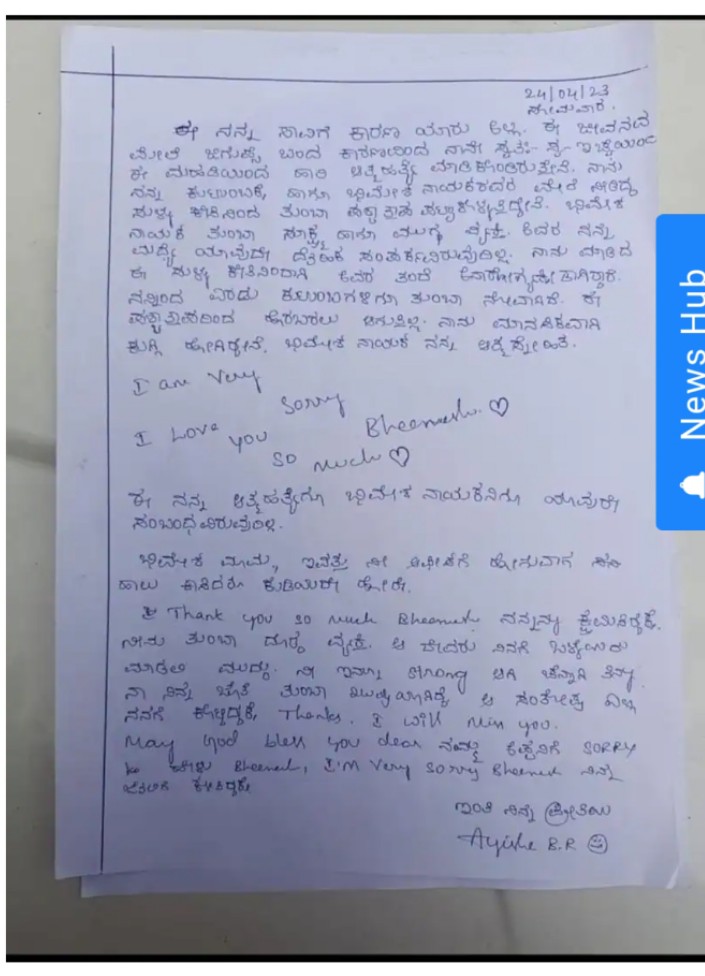 24/04/23
ಸೋಮವಾರ.
ಈ ನನ್ನ ಸಾವಿಗೆ ಕಾರಣ ಯಾರು ಅಲ್ಲ. ಈ ಜೀವನದ
ಮೇಲೆ ಜಿಗುಪ್ಸೆ ಬಂದ ಕಾರಣದಿಂದ ನಾನೇ ಸ್ವತಃ- ಸ್ವ-ಇಚ್ಛೆಯಿಂದ
ಈ ಮಹಡಿಯಿಂದ ಹಾರಿ ಆತ್ಮಹತ್ಯೆ ಮಾಡಿಕೊಂಡಿರುತ್ತೇನೆ. ನಾನು
ನನ್ನ ಕುಟುಂಬಕ್ಕೆ, ಹಾಗೂ ಭಿಮೇಶ ನಾಯಕರವರ ಮೇಲೆ
ಸುಳ್ಳು ತುಂಬಾ ಪಶ್ಚಾತ್ತಾಪ ಭಿಮೇಶ
ನಾಯಕ ತುಂಬಾ ಸೂಕ್ಷ್ಮ ಹಾಗೂ ಮುಗ್ಧ ವ್ಯಕ್ತಿ. ಅವರ ನನ್ನ
ಮಧ್ಯೆ ಯಾವುದೇ ದೈಹಿಕ ಸಂಪರ್ಕವಿರುವುದಿಲ್ಲ. ನಾನು ಮಾಡಿದ
ಈ ಸುಳ್ಳು ಕೇಸಿನಿಂದಾಗಿ ಅವರ ತಂದೆ
ನನ್ನಿಂದ ಎರಡು ಕುಟುಂಬಗಳಿಗೂ ತುಂಬಾ ನೋವಾಗಿದೆ. ಈ
ಪಶ್ಚಾತ್ತಾಪದಿಂದ ಹೊರಬರಲು ಆಗುತ್ತಿಲ್ಲ. ನಾನು ಮಾನಸಿಕವಾಗಿ
ಕುಗ್ಗಿ ಹೋಗಿದ್ದೇನೆ. ಭಿಮೇಶ ನಾಯಕ ನನ್ನ ಆತ್ಮ ಸ್ನೇಹಿತ.
I am Very
Sorry
Bheemesh. ♡
I Love you
so much ♡
ಈ ನನ್ನ ಆತ್ಮಹತ್ಯೆಗೂ ಭಿಮೇಶ ನಾಯಕನಿಗೂ ಯಾವುದೇ
ಸಂಬಂಧವಿರುವುದಿಲ್ಲ.
ಭಿಮೇಶ ಮಾಮ, ಇವತ್ತು ನೀ ಆಫೀಸಿಗೆ ಹೋಗುವಾಗ
ಹಾಲು ಕುಡಿಯದೇ ಹೋದೆ.
Thank you so much Bheemesh ನನ್ನನ್ನು ಕ್ಷಮಿಸಿದ್ದಕ್ಕೆ.
ನೀನು ತುಂಬಾ ದೊಡ್ಡ ವ್ಯಕ್ತಿ. ಆ ದೇವರು ನಿನಗೆ ಒಳ್ಳೆಯದು
ಮಾಡಲಿ ಮುದ್ದು. ನೀ ಇನ್ನೂ strong ಆಗಿ ಚೆನ್ನಾಗಿ ತಿನ್ನು.
ನಾ ನಿನ್ನ ಜೊತೆ ತುಂಬಾ ಖುಷಿಯಾಗಿದ್ದೆ ಆ ಸಂತೋಷ ಎಲ್ಲಾ
ನನಗೆ ಕೊಟ್ಟಿದ್ದಕ್ಕೆ, Thanks. I will miss you.
May god bless you dear ನಮ್ಮ SORRY
ಹೇಳು Bheemesh, I'M Very sorry Bheemesh ನಿನ್ನ
ಇಂತಿ ನಿನ್ನ ಪ್ರೀತಿಯ
Ayisha B.R
News Hub